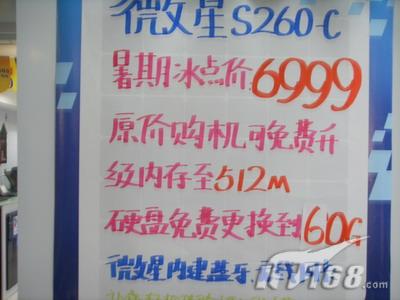 微星S260-C
暑期冰点价6999
原价购机可免费升
级内存至512M
硬盘免费更换到60G
微星内建蓝牙,
IT168
.com